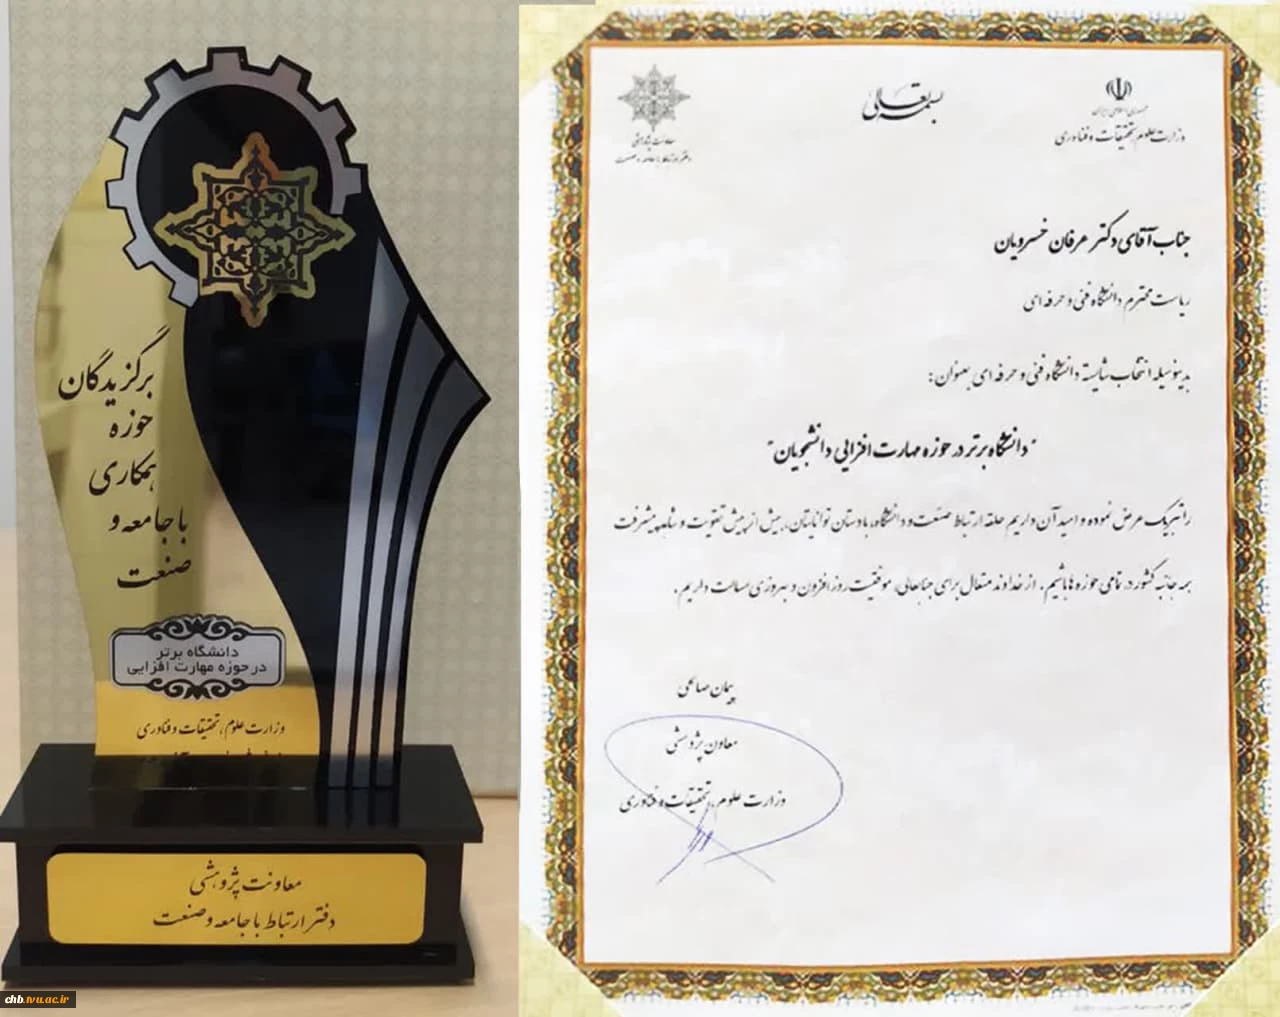 برگزیدگان
حوزه
همکاری
با جامعه و
صنعت
دانشگاه برتر
در حوزه مهارت افزایی
وزارت علوم، تحقیقات و فناوری
معاونت پژوهشی
دفتر ارتباط با جامعه و صنعت
chb.tvu.ac.ir
بسمه تعالی
جمهوری اسلامی ایران
وزارت علوم، تحقیقات و فناوری
معاونت پژوهشی
دفتر ارتباط با جامعه و صنعت
جناب آقای دکتر عرفان خسرویان
ریاست محترم دانشگاه فنی و حرفه ای
بدینوسیله انتخاب شایسته دانشگاه فنی و حرفه ای بعنوان:
"دانشگاه برتر در حوزه مهارت افزایی دانشجویان"
را تبریک عرض نموده و امید آن داریم حلقه ارتباط صنعت و دانشگاه، با دستان توانایتان، بیش از پیش تقویت و شاهد پیشرفت
همه جانبه کشور در تمامی حوزه ها باشیم. از خداوند متعال برای جنابعالی، موفقیت روزافزون و بهروزی مسالت داریم.
پیمان صالحی
معاون پژوهشی
وزارت علوم، تحقیقات و فناوری